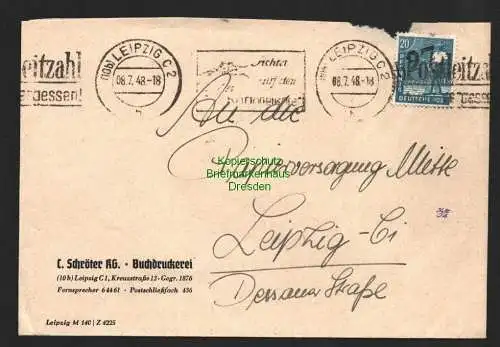 (10b) LEIPZIG C 2
08.7.48.-18
eitzahl
gessen!
(10b) LEIPZIG C 2
08.7.48.-18
20
DEUTSCHE POST
Postleitzahl
gessen!
An die
Papierversorgung Mitte
Leipzig - C1
Dessauer Straße
Kopierschutz
Briefmarkenhaus
Dresden
C. Schröter KG. • Buchdruckerei
(10b) Leipzig C 1, Kreuzstraße 12 - Gegr. 1876
Fernsprecher 64461 - Postschließfach 436
Leipzig M 140 | Z 4225